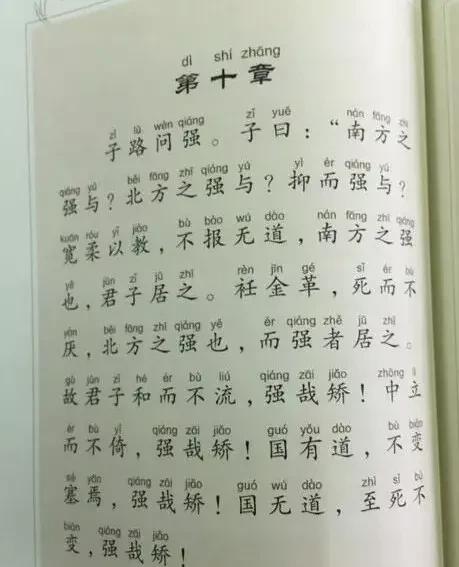 dì shí zhāng
第十章
zǐ lù wèn qiáng zǐ yuē nán fāng zhī
子路问强。子曰：“南方之
qiáng yú běi fāng zhī qiáng yú yì ér qiáng yú
强与？北方之强与？抑而强与？
kuān róu yǐ jiào bù bào wú dào nán fāng zhī qiáng
宽柔以教，不报无道，南方之强
yě jūn zǐ jū zhī rèn jīn gé sǐ ér bù
也，君子居之。衽金革，死而不
yàn běi fāng zhī qiáng yě ér qiáng zhě jū zhī
厌，北方之强也，而强者居之。
gù jūn zǐ hé ér bù liú qiáng zāi jiǎo zhōng lì
故君子和而不流，强哉矫！中立
ér bù yǐ qiáng zāi jiǎo guó yǒu dào bù biàn
而不倚，强哉矫！国有道，不变
sè yān qiáng zāi jiǎo guó wú dào zhì sǐ bù
塞焉，强哉矫！国无道，至死不
biàn qiáng zāi jiǎo
变，强哉矫！